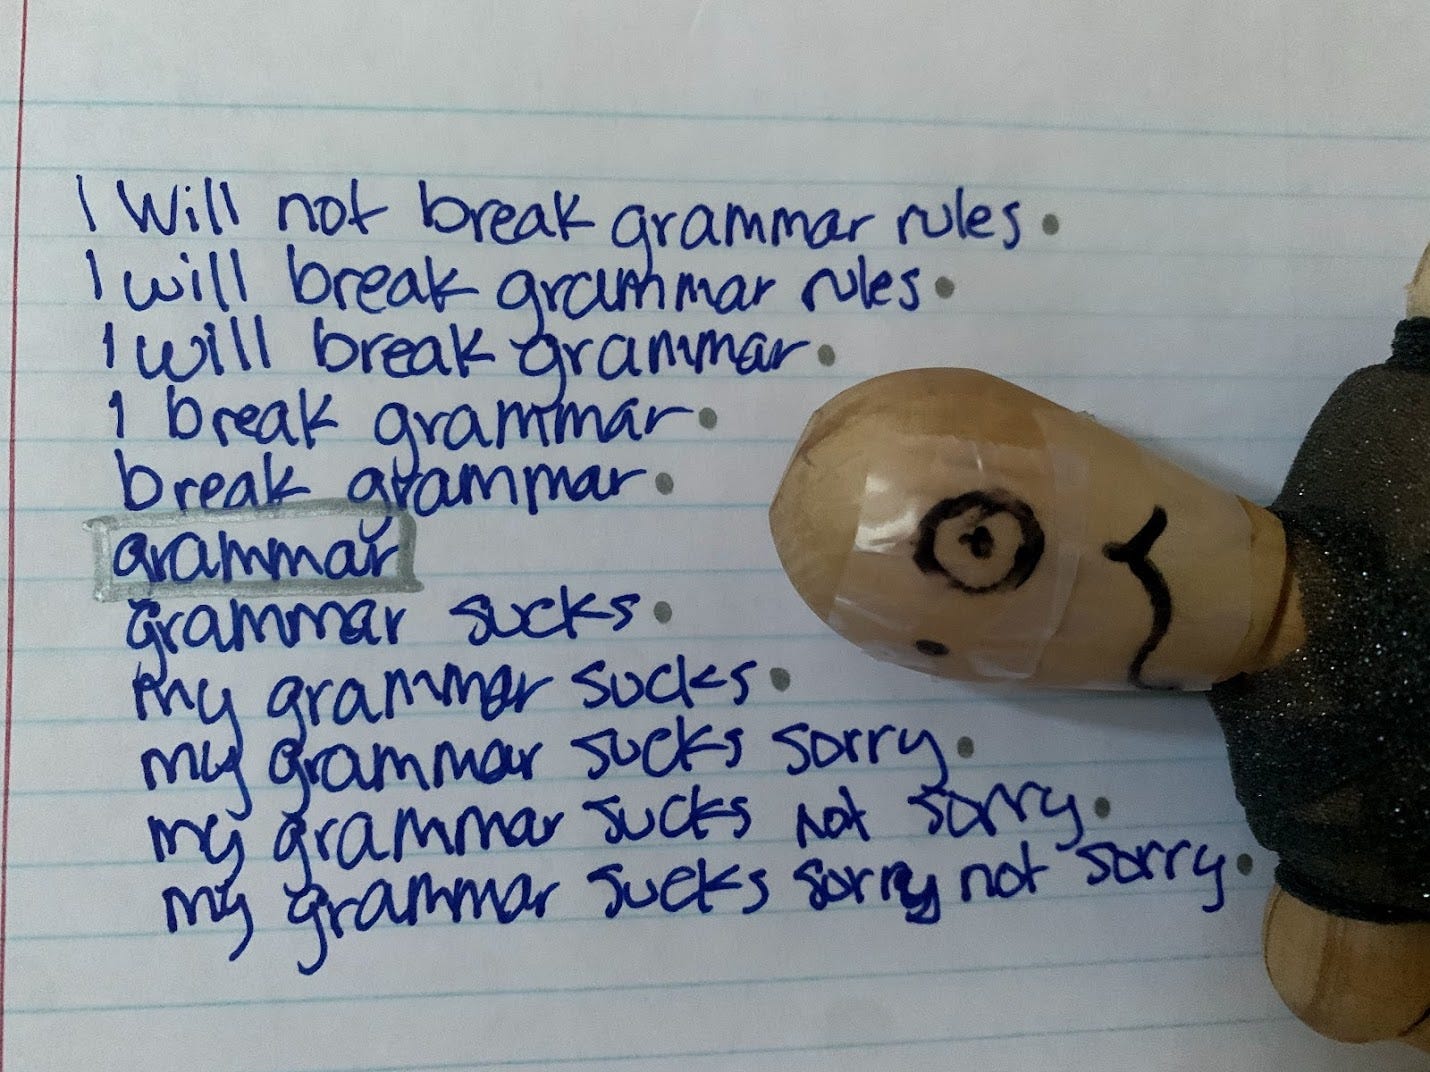 I Will not break grammar rules.
I will break grammar rules.
I will break grammar.
I break grammar.
break grammar.
grammar
grammar sucks.
my grammar sucks.
my grammar sucks sorry.
my grammar sucks not sorry.
my grammar sucks sorry not sorry.